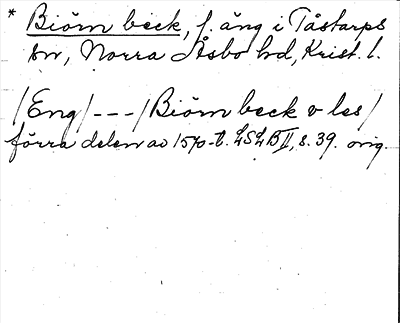 * Biörn beck, f. äng i Tåstarps
sn, Norra Åsbo hd, Krist. l.
/Eng/---/Biörn beck v les/
förra delen av 1570-t. LSLB II, s. 39. orig.